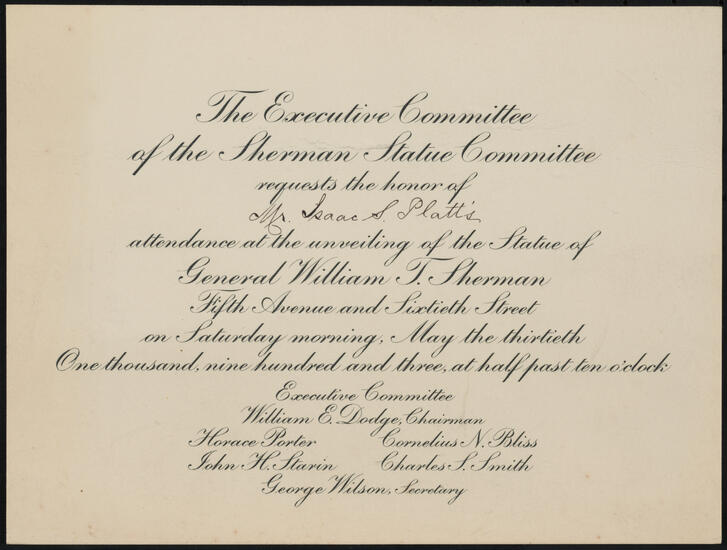 The Executive Committee
of the Sherman Statue Committee
requests the honor of
Mr. Isaac S. Platt's
attendance at the unveiling of the Statue of
General William T. Sherman
Fifth Avenue and Sixtieth Street
on Saturday morning, May the thirtieth
One thousand, nine hundred and three, at half past ten o'clock
Executive Committee
William E. Dodge, Chairman
Horace Porter Cornelius N. Bliss
John H. Starin Charles S. Smith
George Wilson, Secretary